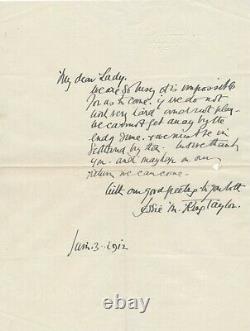 My dear Lady.
We are so busy it is impossible
for us to come. if we do not
work very hard and not play
we cannot get away by the
end of June. & we must be in
Scotland by then. With
you. and maybe on our
return we can come.
With our good greetings to you both
Jessie M. King Taylor.
Jun. 3. 1912